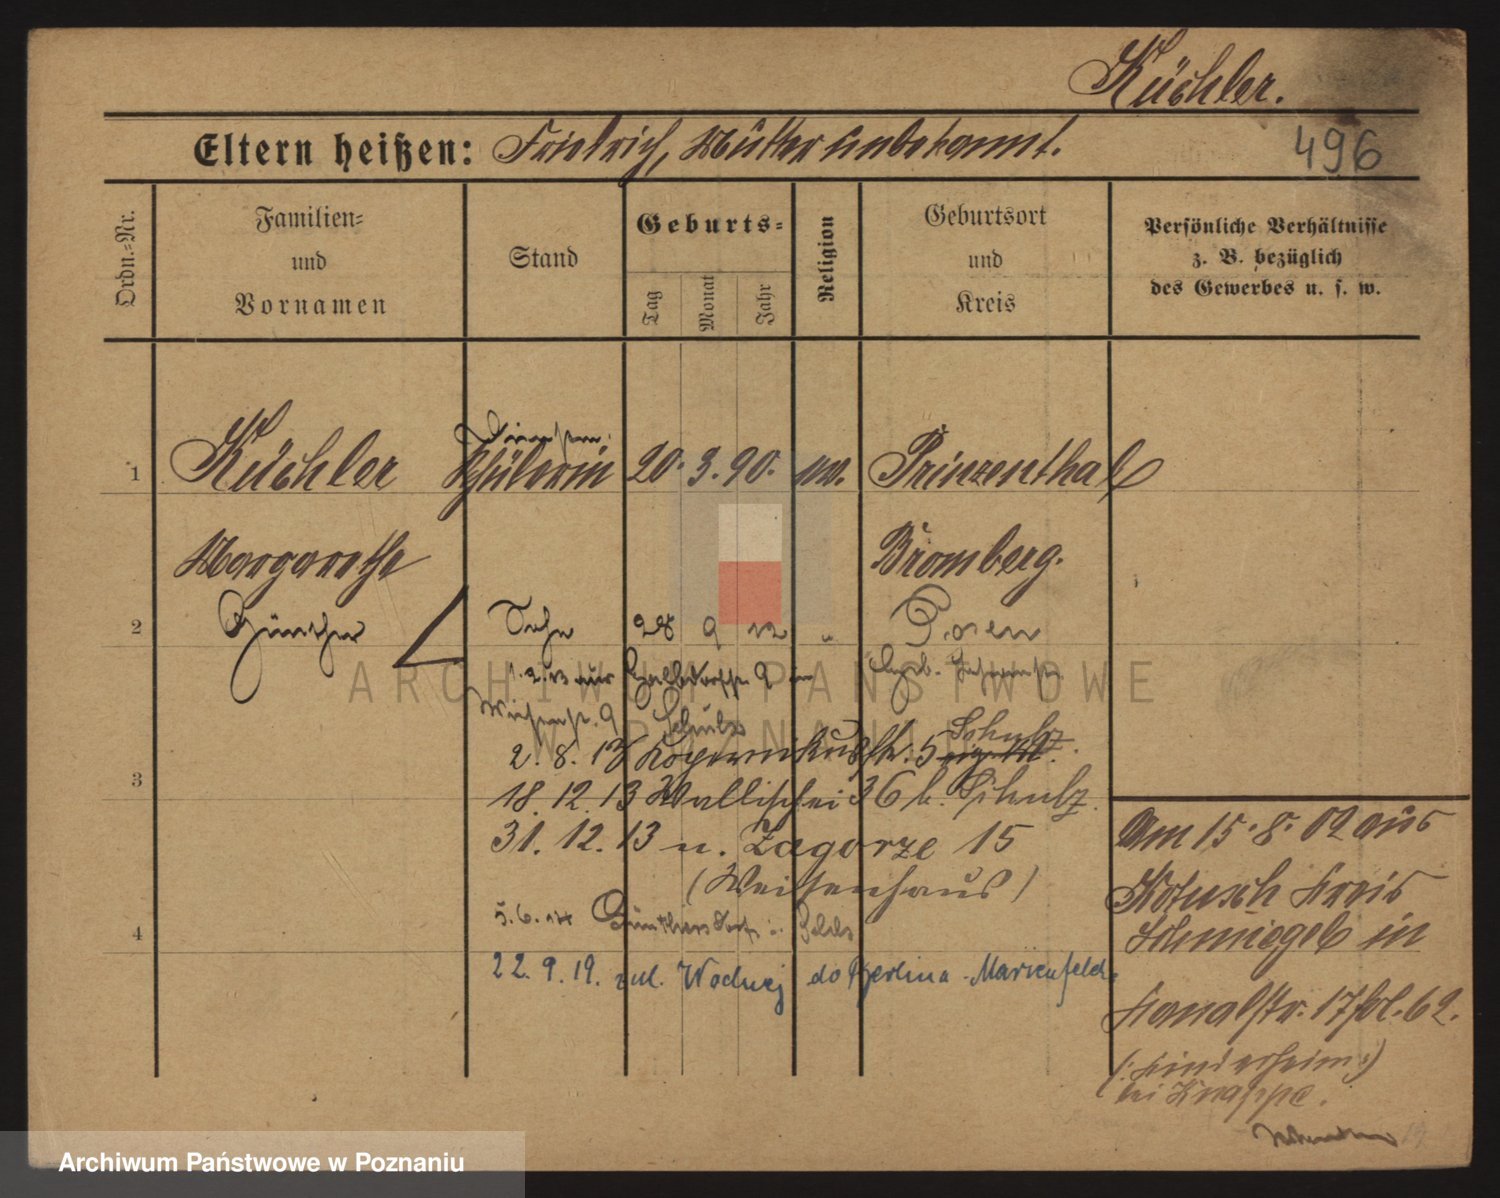 Küchler.
Eltern heißen: Friedrich, Mutter unbekannt.
496
Ordn.=Nr.
Familien=
und
Vornamen
Stand
Geburts=
Tag
Monat
Jahr
Religion
Geburtsort
und
Kreis
Persönliche Verhältnisse
z. B. bezüglich
des Gewerbes u. s. w.
1 Küchler Schülerin 20. 3. 90. Prinzenthal
Margarethe Bromberg.
2 Günther Sohn 28 9 12 " Posen
1.2.13 aus 9
9 Schulz
2. 8. 13 Kopernikusstr. 5 Schulz.
3
18. 12. 13 Wallischei 36 b. Schulz.
31. 12. 13 n. Zagorze 15
(Waisenhaus)
4
5.6.14 Günthersdorf
22. 9. 19. ul. Wodnej do Berlina-Marienfelde
Am 15. 8. 02 aus
Kotusch Kreis
Schmiegel in
Kanalstr. 17 bl. 62.
(: Kinderheim :)
bei Knappe.
ARCHIWUM PAŃSTWOWE
W POZNANIU
Archiwum Państwowe w Poznaniu